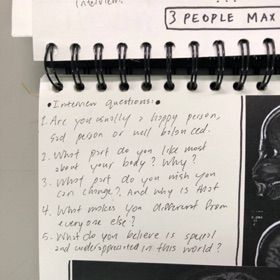 interview.
3 PEOPLE MAX
• Interview questions:•
1. Are you usually a happy person,
sad person or well balanced.
2. What part do you like most
about your body? Why?
3. What part do you wish you
can change?. And why is that
4. What makes you different from
everyone else?
5. What do you believe is special
and underappreciated in this world?